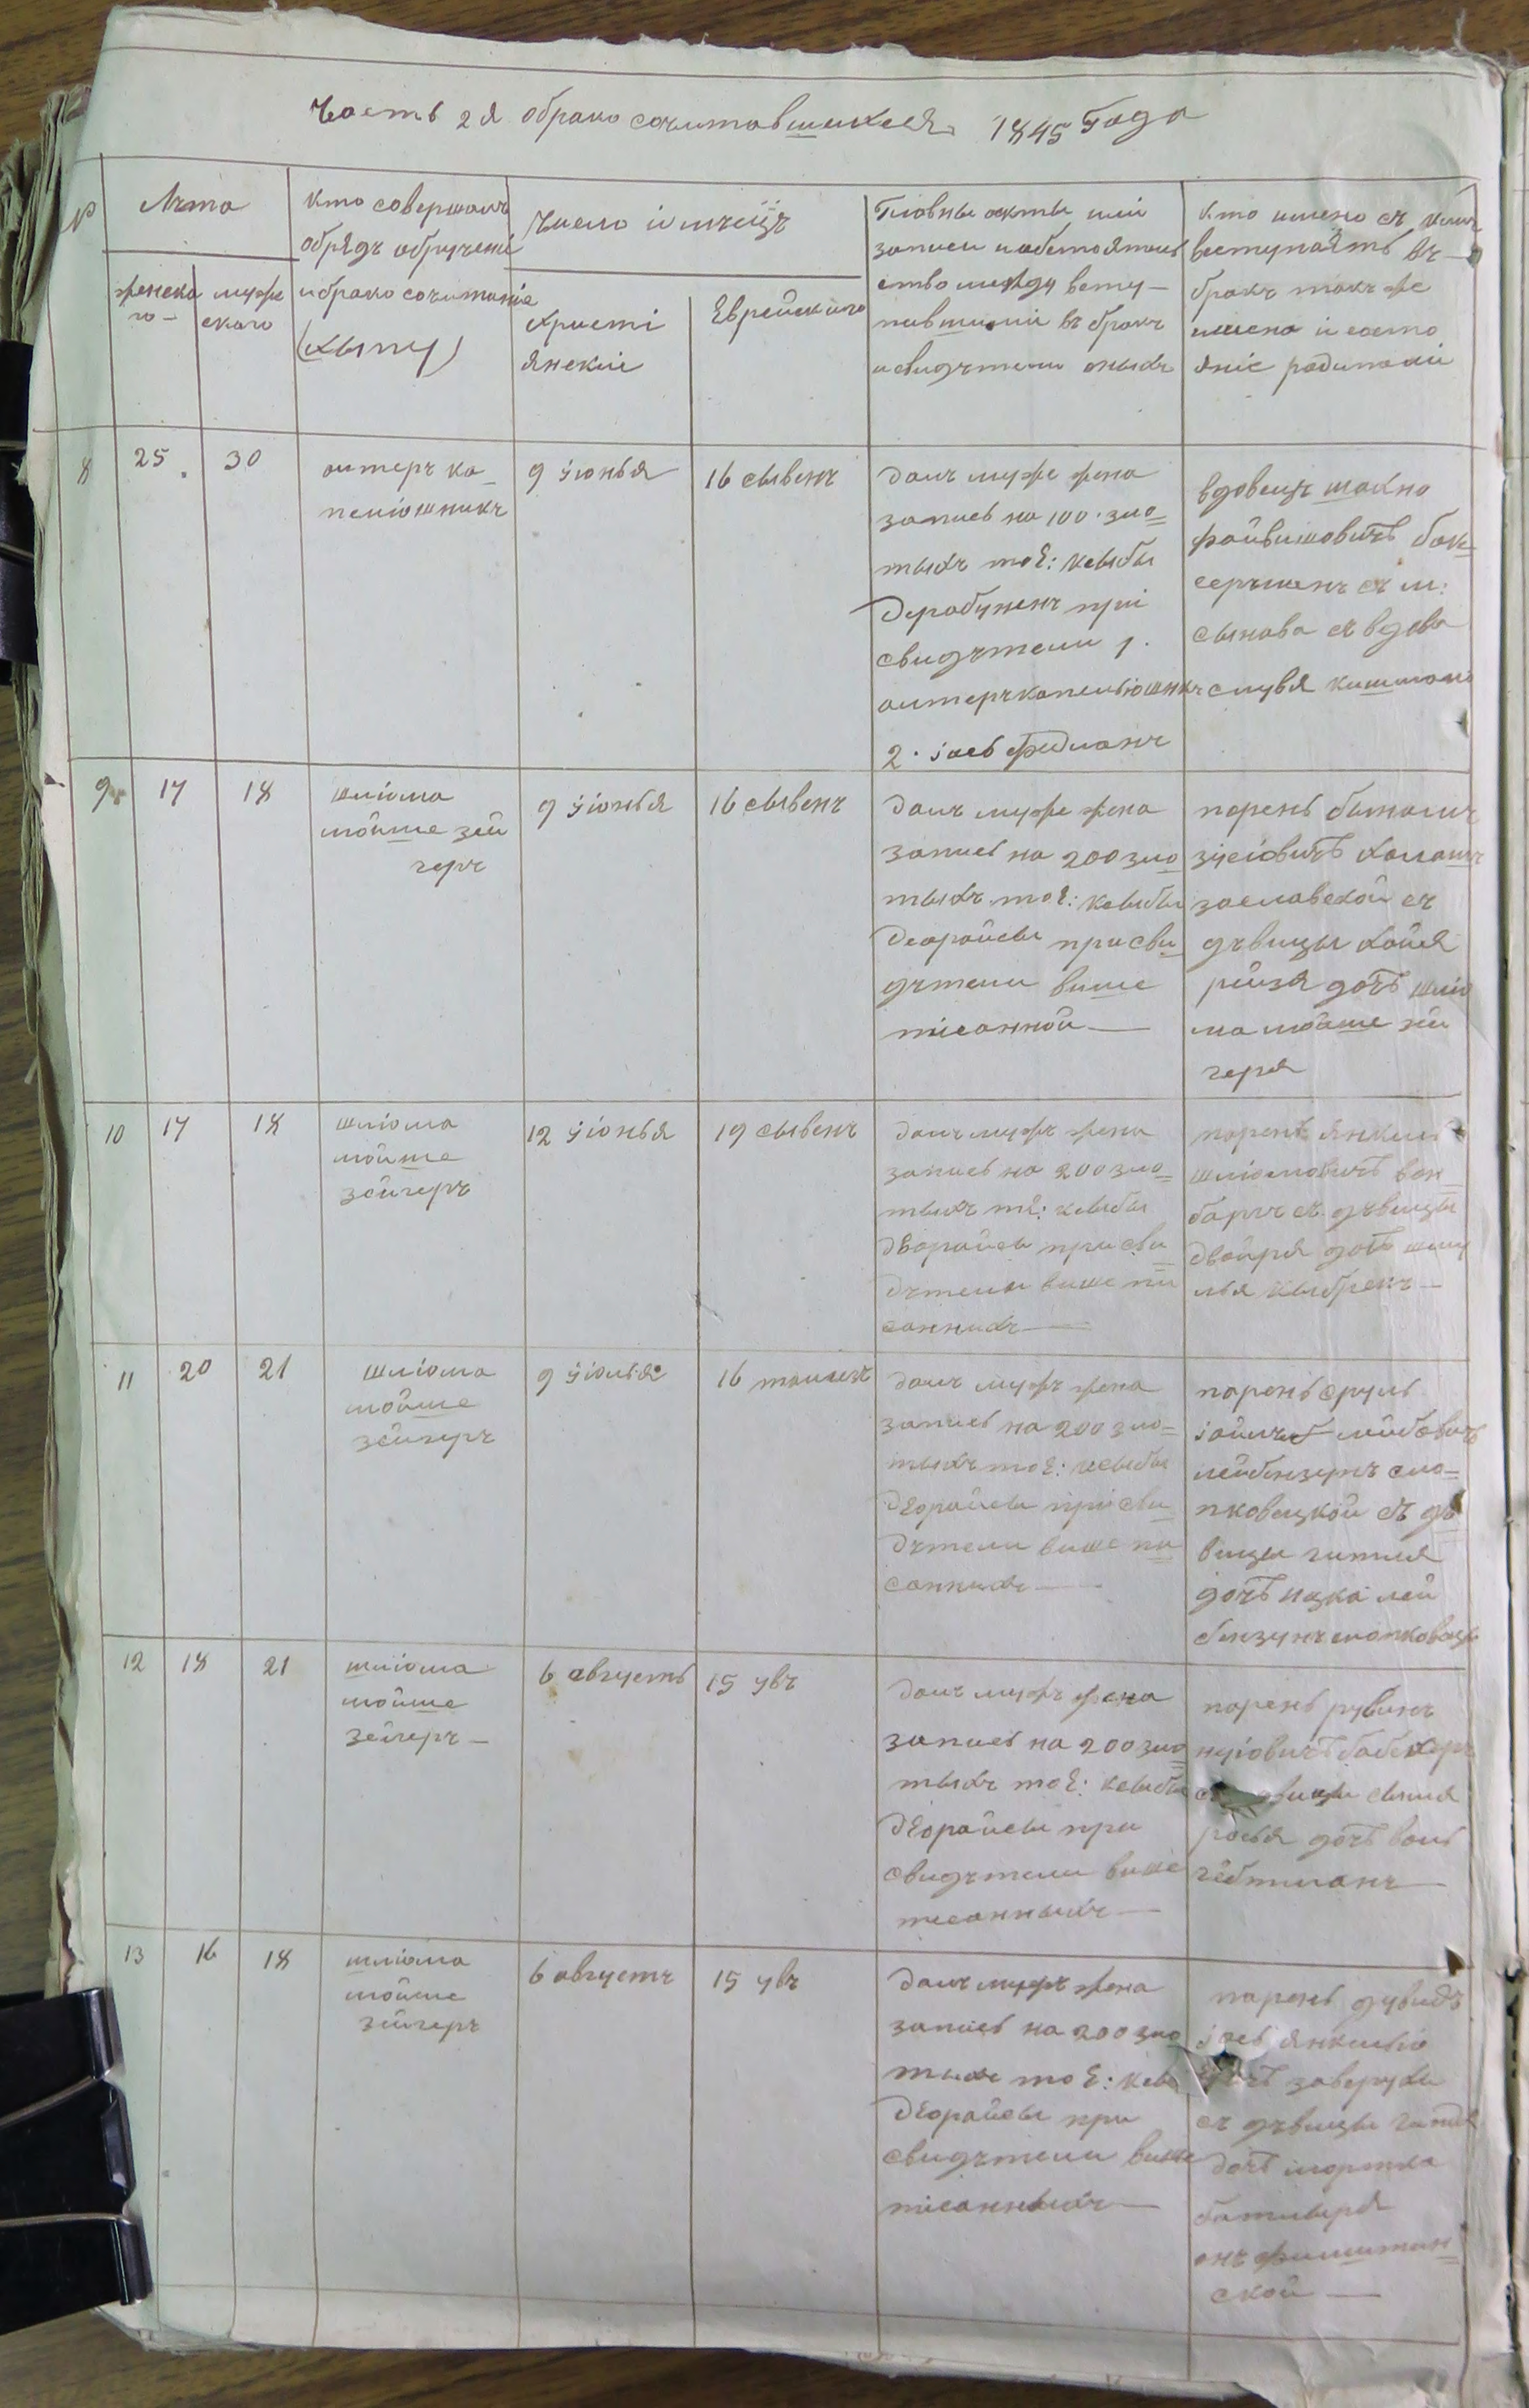 Часть 2я о брако сочитавшихся 1845 Года
№
Лѣта
женска
го
муже
скаго
Кто совершалъ
обрядъ обрученi
и брако сочитанiе
(хыпу)
Число i мѣсiцъ
Христi
янскiи
Еврейскаго
Главны акты илi
записи и обстоятель
ство между всту
пившими въ бракъ
и свидѣтели оныхъ
Кто имено съ кимъ
вступаятъ въ
бракъ такъ же
имено i состо
янiе радителй
8
25
30
алтеръ ка
пелюшникъ
9 Юнья
16 сывенъ
Далъ муже жена
запись на 100 зло
тыхъ тоЕ: ксыбы
Дерабуненъ прi
свидѣтели 1.
алтеръ капелюшникъ
2. iось фидманъ
вдовецъ шахно
файвишовичъ бок
серманъ съ м:
сынава съ вдова
слувя
9
17
18
шлiома
мойше зей
геръ
9 Юнья
16 сывенъ
Далъ муже жена
запись на 200 зло
тыхъ тоЕ: ксыбы
Деорайсы при сви
дѣтели више
писанной
парень
зусiовичъ
заславской съ
дѣвицы хайя
рейзя дочь шлiо
ма мойше зей
геря
10
17
18
шлiома
мойше
зейгеръ
12 Юнья
19 сывенъ
Далъ мужъ жена
запись на 200 зло
тыхъ тЕ: ксыбы
ДЕорайсы при сви
дѣтели више пи
санныхъ
парень янкель
шлiомовичъ
съ дѣвицы
двойря дочь
11
20
21
шлiома
мойше
зейгеръ
9 Юлья
16 тамызъ
Далъ мужъ жена
запись на 200 зло
тыхъ тоЕ: ксыбы
ДЕорайсы при сви
дѣтели више пи
санныхъ
парень сруль
лейбовичъ
лейбензунъ сло
пковецкой съ дѣ
вицы гитля
дочь ицка лей
бензунъ
12
18
21
шлiома
мойше
зейгеръ
6 августь
15 увъ
Далъ мужъ жена
запись на 200 зло
тыхъ тоЕ: ксыбы
ДЕорайсы при
свидѣтели више
писанныхъ
парень рувинъ
нусiовичъ
рося дочь воль
гебтманъ
13
16
18
шлiома
мойше
зейгеръ
6 августъ
15 увъ
Далъ мужъ жена
запись на 200 зло
тыхъ тоЕ: ксы
ДЕорайсы при
свидѣтели више
писанныхъ
парень дувидъ
iось янкелiо
заверухи
съ дѣвицы
дочь
ской